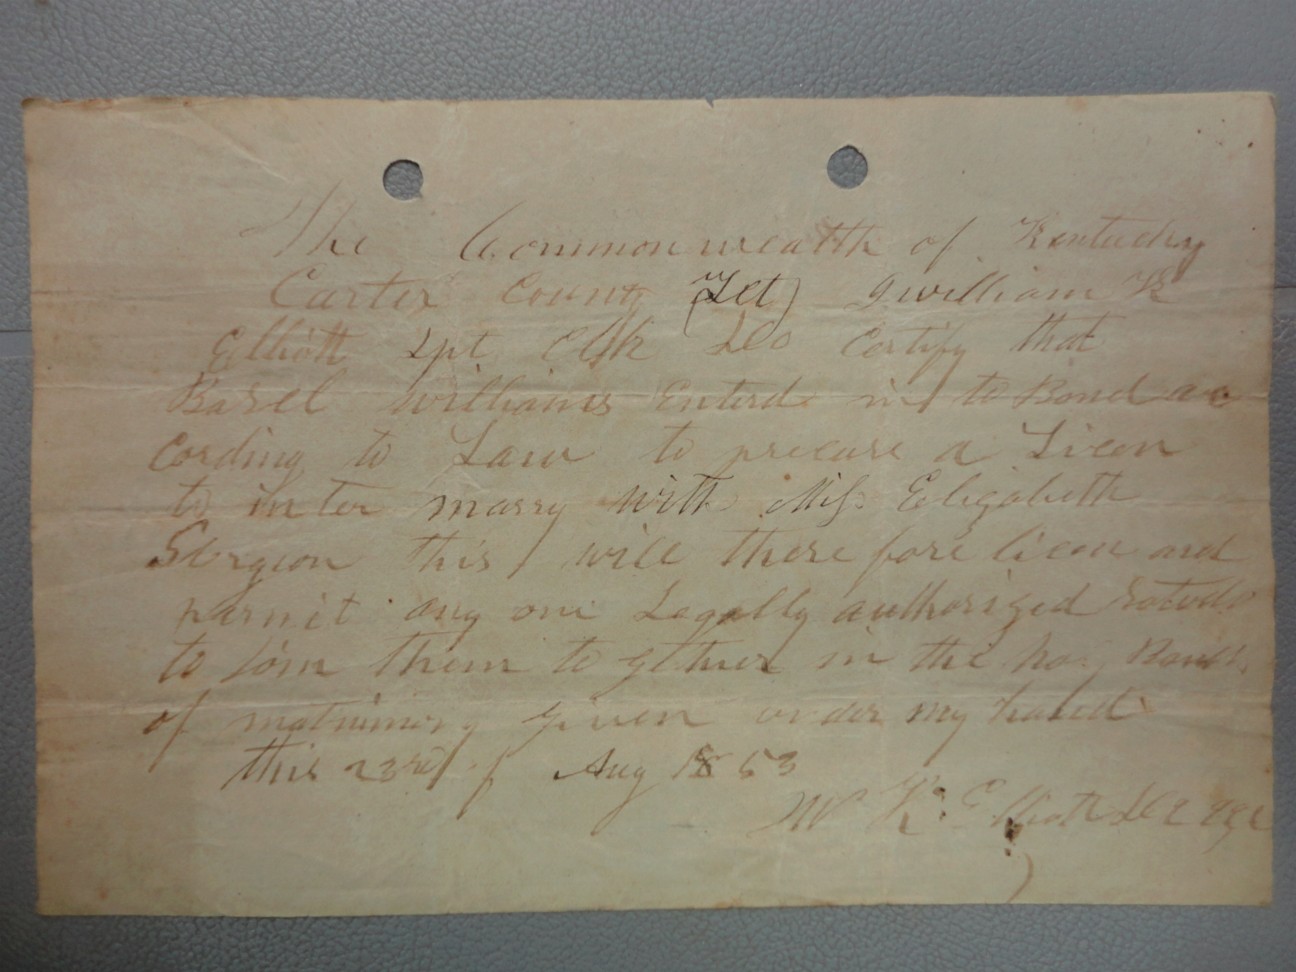 The Commonwealth of Kentucky
Carter County (Sct) I william K
Elliott Dpt Clk Do Certify that
Basel Williams Enterd in to Bond ac
cording to Law to procure a Licen
to inter marry with Miss Elizabeth
Sergeon this will there fore licen and
permit any one Legally authorized
to Join them to gether in the Bands
of matrimony given under my hand
this 23rd of Aug 1853
W K Elliott